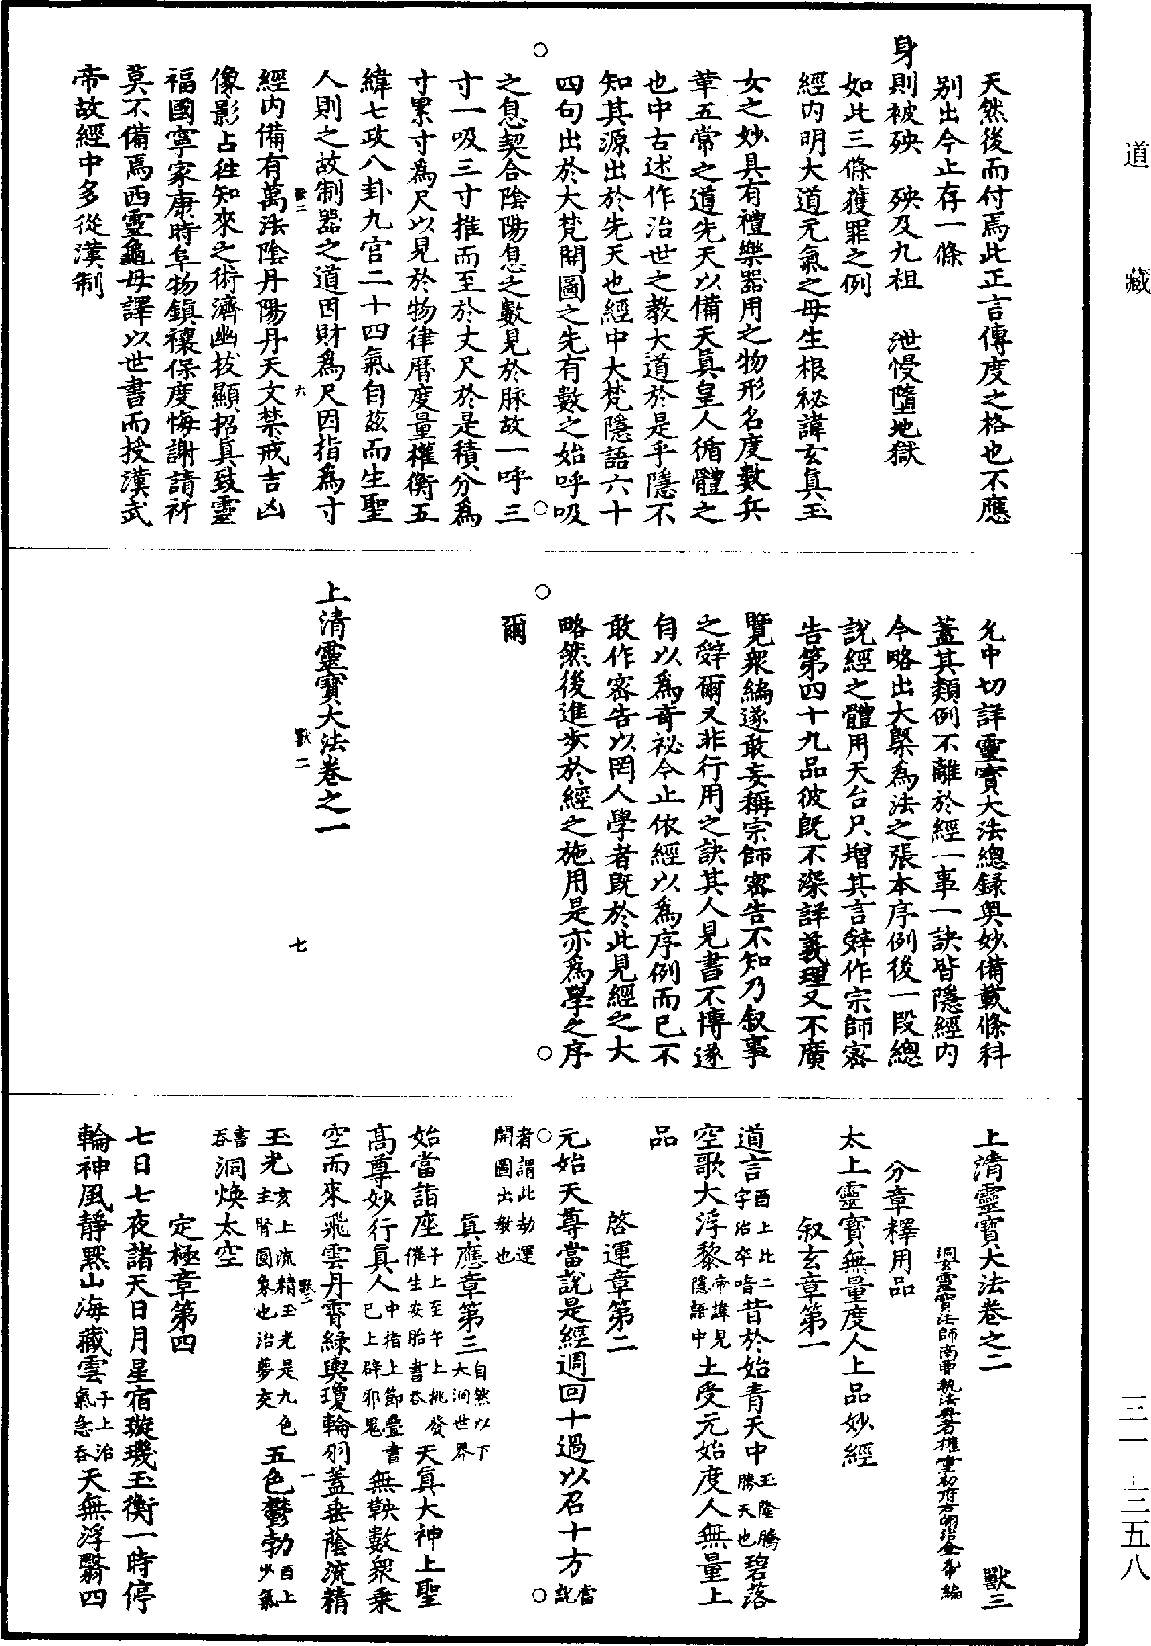 道藏
天然後而付焉此正言傳度之格也不應
別出今止存一條
身則被殃　殃及九祖　泄慢墮地獄
如此三條獲罪之例
經內明大道元氣之母生根祕諱玄真玉
女之妙具有禮樂器用之物形名度數兵
革五常之道先天以備天真皇人循體之
也中古述作治世之教大道於是乎隱不
知其源出於先天也經中大梵隱語六十
四句出於大梵開圖之先有數之始呼吸
之息契合陰陽息之數見於脉故一呼三
寸一吸三寸推而至於丈尺於是積分為
寸累寸為尺以見於物律曆度量權衡五
緯七政八卦九宮二十四氣自茲而生聖
人則之故制器之道因財為尺因指為寸
獸二　六
經內備有萬法陰丹陽丹天文禁戒吉凶
像影占往知來之術濟幽拔顯招真致靈
福國寧家康時阜物鎮禳保度悔謝請祈
莫不備焉西靈龜母譯以世書而授漢武
帝故經中多從漢制
允中切詳靈寶大法總錄奧妙備載條科
蓋其類例不離於經一事一訣皆隱經內
今略出大槩為法之張本序例後一段總
說經之體用天台尺增其言辭作宗師密
告第四十九品彼既不深詳義理又不廣
覽衆編遂敢妄稱宗師密告不知乃叙事
之辭爾又非行用之訣其人見書不博遂
自以為奇祕今止依經以為序例而已不
敢作密告以罔人學者既於此見經之大
略然後進步於經之施用是亦為學之序
爾
上清靈寶大法卷之一
獸二　七
上清靈寶大法卷之二　獸三
洞玄靈寶法師南曹執法典者權童初府右翊治金允中編
分章釋用品
太上靈寶無量度人上品妙經
叙玄章第一
道言酉上比二字治卒喑昔於始青天中玉隆騰勝天也碧落
空歌大浮黎帝諱見隱語中土受元始度人無量上
品
啓運章第二
元始天尊當說是經週回十過以召十方當說
者謂此劫運開圖出教也
真應章第三自然以下大洞世界
始當詣座子上至午上桃發催生安胎書吞天真大神上聖
高尊妙行真人中指上節疊書已上辟邪鬼無鞅數衆乘
空而來飛雲丹霄綠輿瓊輪羽蓋垂蔭流精
獸三　一
玉光亥上流精玉光是九色主腎圓象也治夢交五色鬱勃酉上少氣
書吞洞煥太空
定極章第四
七日七夜諸天日月星宿璇璣玉衡一時停
輪神風靜默山海藏雲子上治氣急吞天無浮翳四
三一―三五八